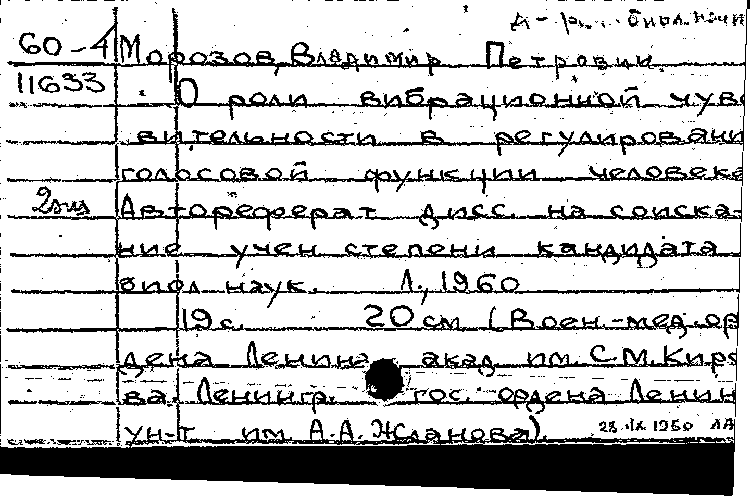 д-р биол. наук
60-4 Морозов, Владимир Петрович.
11633 О роли вибрационной чувс
вительности в регулировани
голосовой функции человека
2экз Автореферат дисс. на соиска-
ние учен степени кандидата
биол наук. Л., 1960
19 с. 20 см (Воен.-мед. ор
дена Ленина акад им. С.М. Киро
ва. Ленингр. гос. ордена Ленин
ун-т им. А.А. Жданова).